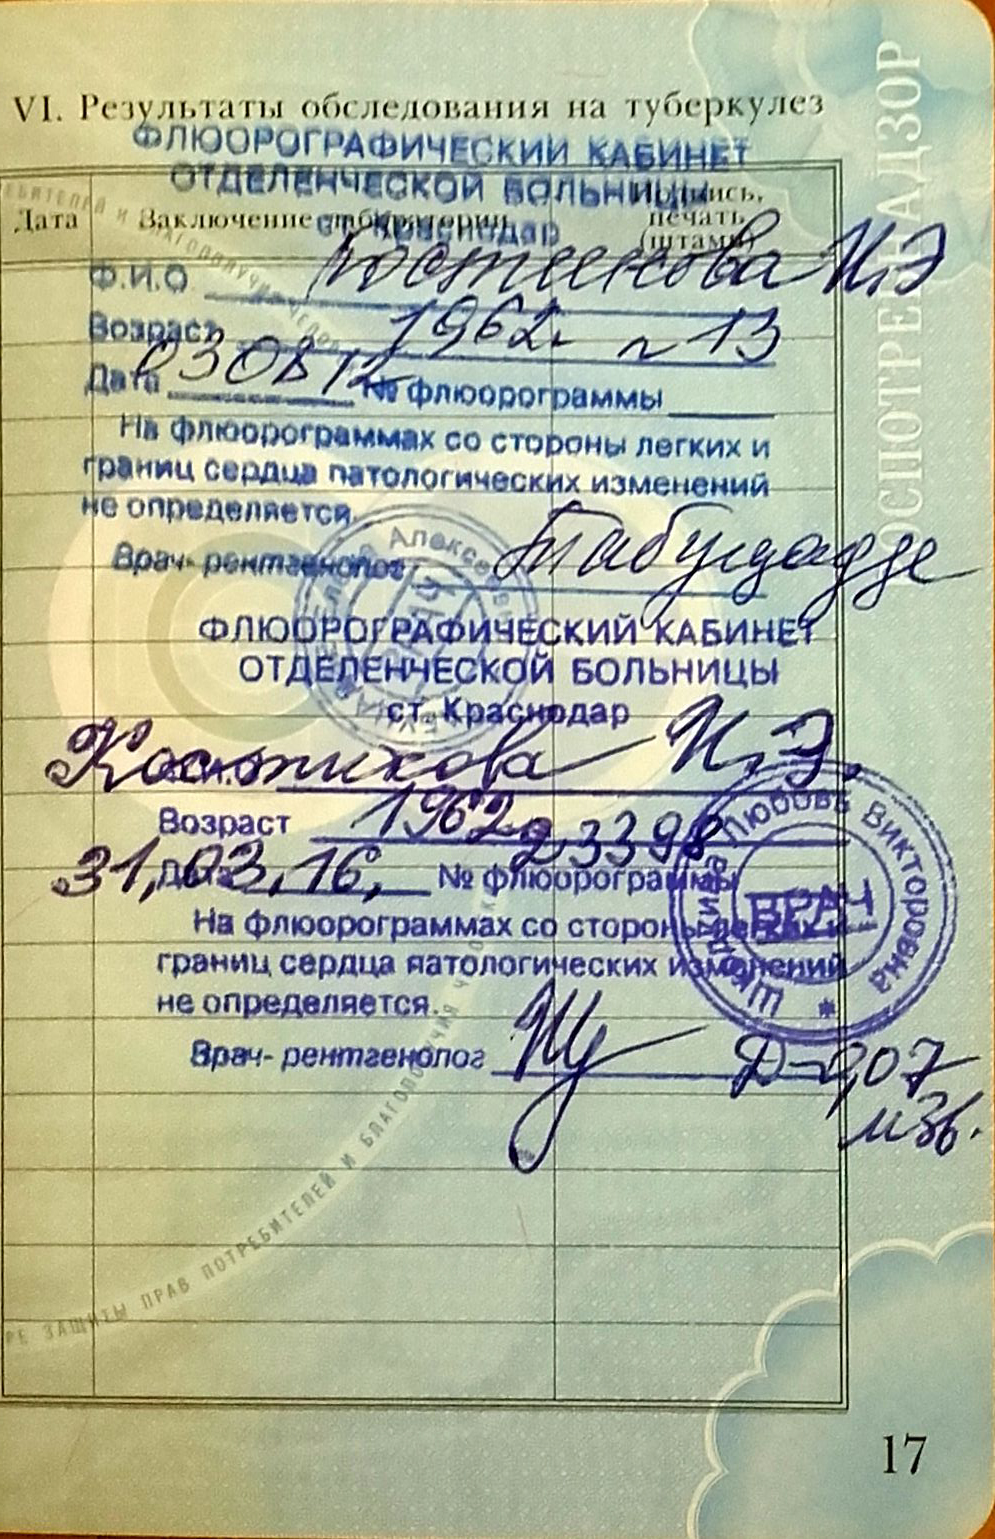 VI. Результаты обследования на туберкулез
ФЛЮОРОГРАФИЧЕСКИЙ КАБИНЕТ
ОТДЕЛЕНЧЕСКОЙ БОЛЬНИЦЫ
ст. Краснодар
Дата Заключение лаборатории Подпись, печать (штамп)
Ф.И.О Костикова И.Э
Возраст 1962г. ~ 13
Дата 030812 № флюорограммы
На флюорограммах со стороны легких и
границ сердца патологических изменений
не определяется.
Врач- рентгенолог
ВРАЧ
ФЛЮОРОГРАФИЧЕСКИЙ КАБИНЕТ
ОТДЕЛЕНЧЕСКОЙ БОЛЬНИЦЫ
ст. Краснодар
Костикова И.Э.
Возраст 1962г 23398
Дата 31,03,16, № флюорограммы
На флюорограммах со стороны легких и
границ сердца патологических изменений
не определяется.
Врач- рентгенолог
Любовь Викторовна
ВРАЧ
Д-0,07
мЗв.
РОСПОТРЕБНАДЗОР
ЗАЩИТЫ ПРАВ ПОТРЕБИТЕЛЕЙ И БЛАГОПОЛУЧИЯ
17